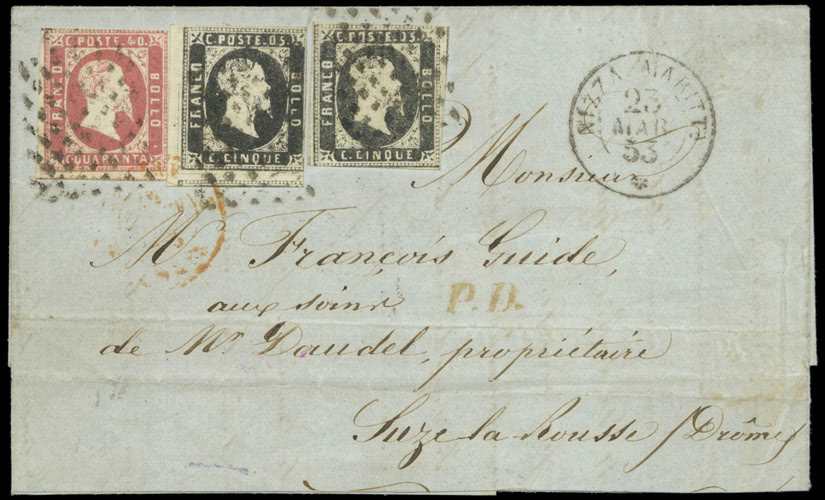 C. POSTE. 40.
FRANCO
BOLLO
C. QUARANTA
C. POSTE. 05.
FRANCO
BOLLO
C. CINQUE
C. POSTE. 05.
FRANCO
BOLLO
C. CINQUE
NIZZA MARITT
23
MAR
53
Monsieur
Mr François Guide,
aux soins
P.D.
de Mr Daudel, propriétaire
Suze la Rousse (Drôme)